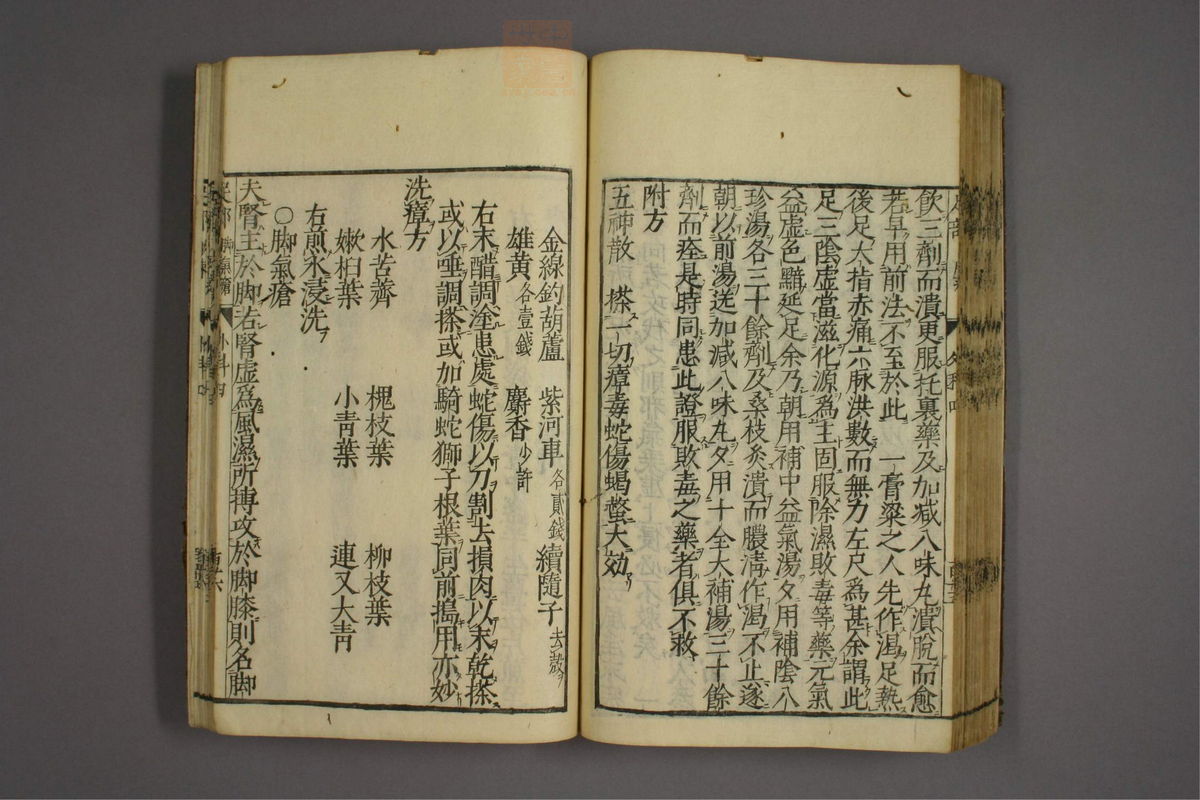 飲三劑而潰更服托裏藥及加减八味丸潰脫而愈
若早用前法不至於此 一膏粱之人先作渴足熱
後足大指赤痛六脉洪數而無力左尺爲甚余謂此
足三陰虛當滋化源爲主固服除濕敗毒等藥元氣
益虛色黯延足余乃朝用補中益氣湯夕用補陰八
珍湯各三十餘劑及桑枝灸潰而膿淸作渴不止遂
朝以前湯送加减八味丸夕用十全大補湯三十餘
劑而痊是時同患此證服敗毒之藥者俱不救
附方
五神散 搽一切瘴毒蛇傷蝎螫大効
金線釣葫蘆 紫河車各貳錢 續隨子去殼
雄黄各壹錢 麝香少許
右末醋調塗患處蛇傷以刀割去損肉以末乾搽
或以唾調搽或加騎蛇獅子根葉同前搗用亦妙
洗瘴方
水苦蕒 槐枝葉 柳枝葉
嫰桕葉 小青葉 連又大青
右煎水浸洗
○脚氣瘡
夫腎主於脚若腎虛爲風濕所搏攻於脚膝則名脚